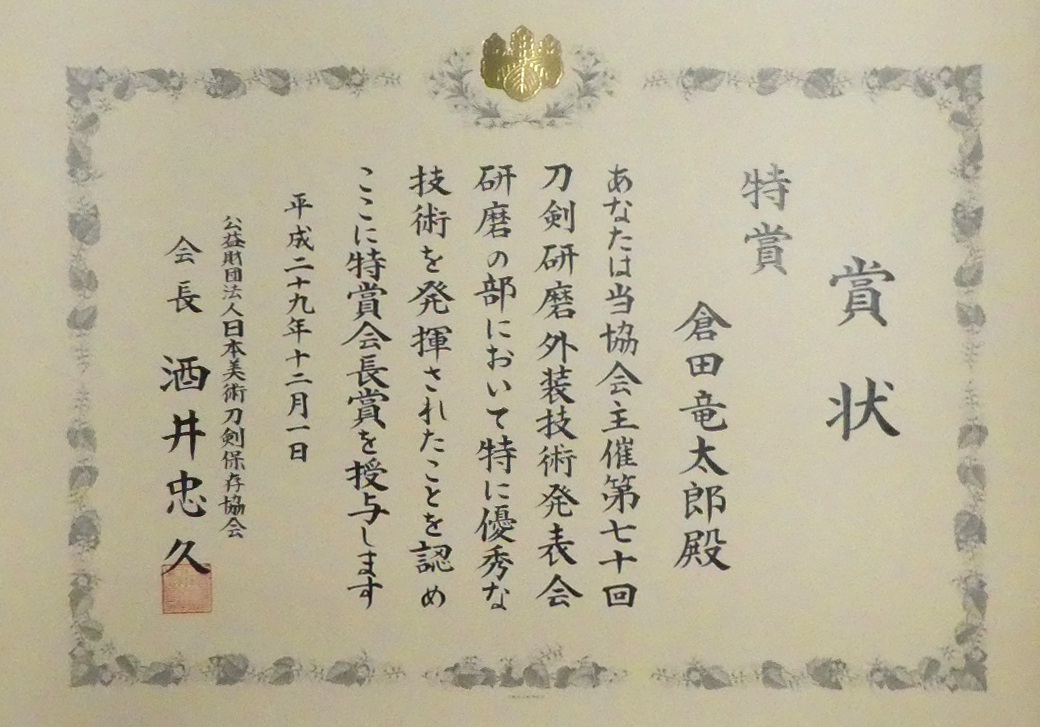 賞状
特賞
倉田竜太郎殿
あなたは当協会主催第七十回
刀剣研磨外装技術発表会
研磨の部において特に優秀な
技術を発揮されたことを認め
ここに特賞会長賞を授与します
平成二十九年十二月一日
公益財団法人日本美術刀剣保存協会
会長 酒井忠久